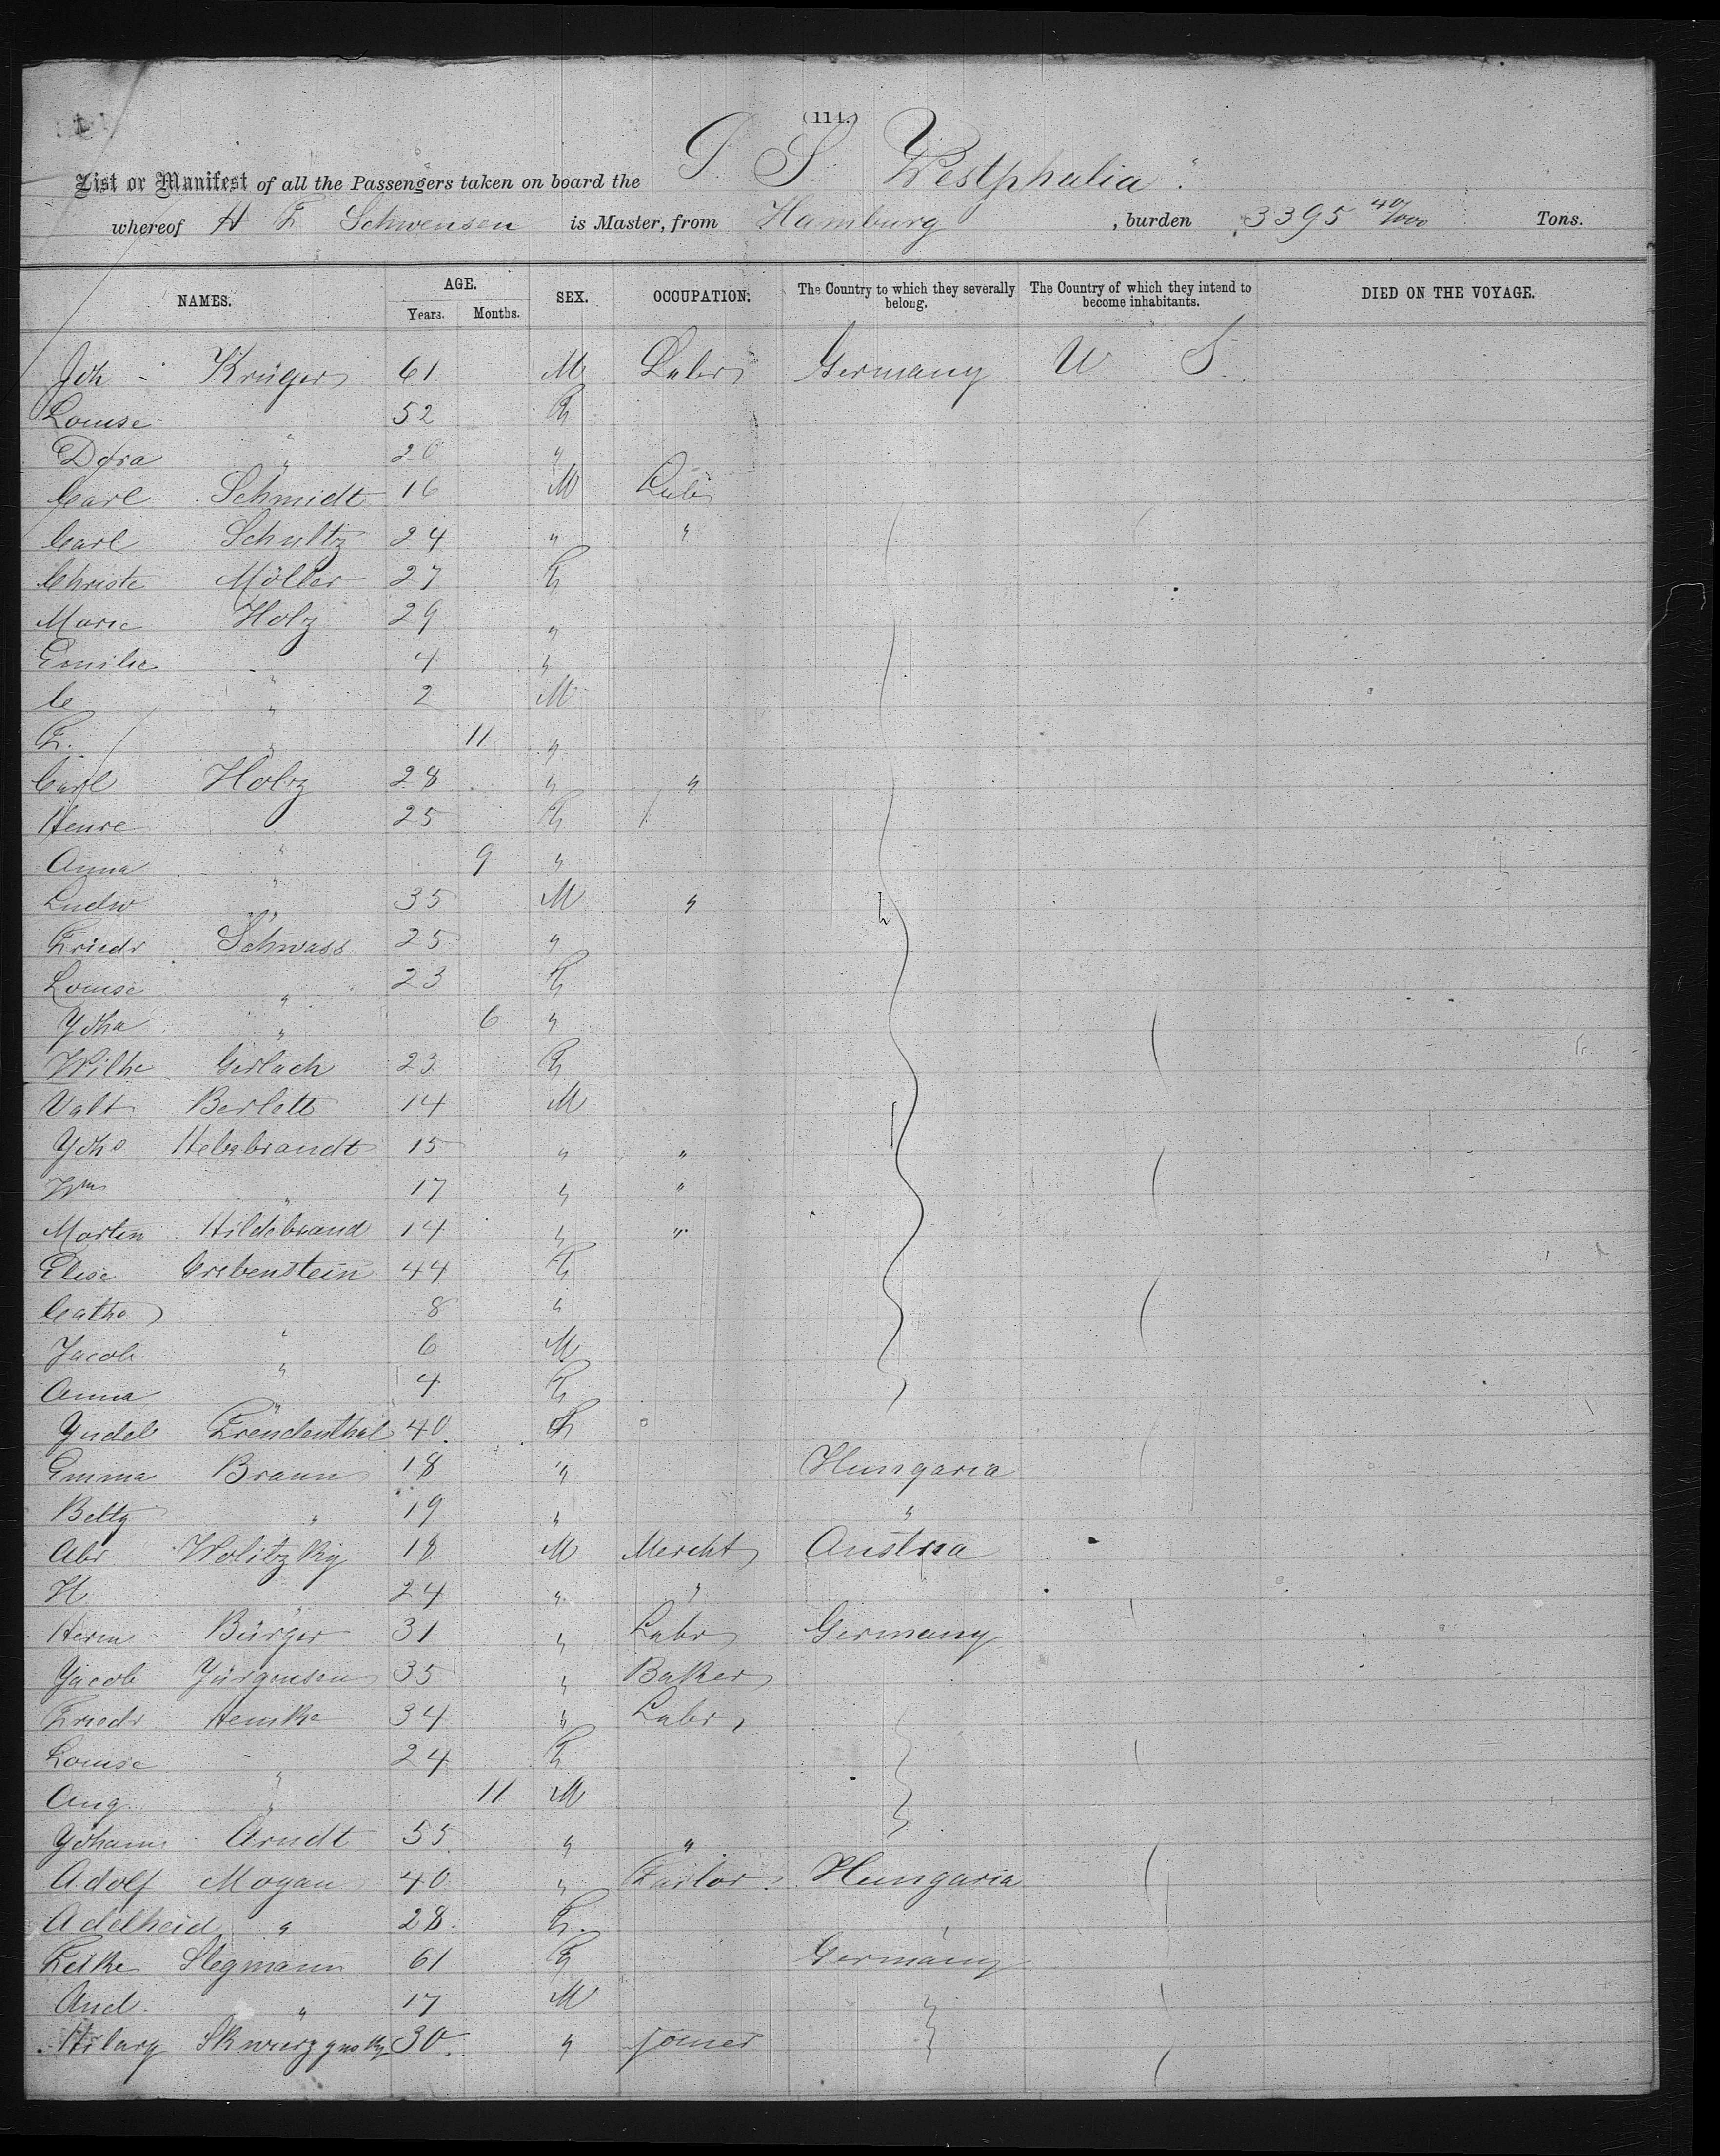 (114.)
List or Manifest of all the Passengers taken on board the S. S. Westphalia
whereof H F Schwensen is Master, from Hamburg, burden 3395 40/1000 Tons.
NAMES. AGE. Years. Months. SEX. OCCUPATION. The Country to which they severally belong. The Country of which they intend to become inhabitants. DIED ON THE VOYAGE.
Joh - Krüger 61 M Labr Germany U S.
Louise " 52 F
Dora " 20 "
Carl Schmidt 16 M Labr
Carl Schultz 24 " "
Christe Möller 27 F
Marie Holz 29 "
Emilie " 4 "
C " 2 M
F. " 11 "
Carl Holz 28 " "
Henre " 25 F
Anna " 9 "
Ludw " 35 M "
Friedr Schwass 25 "
Louise " 23 F
Joha " 6 "
Wilhe Gerlach 23 F
Valt Berlett 14 M
Joho Helebrandt 15 " "
Wm " 17 " "
Martin Hildebrand 14 " "
Elise Grebenstein 44 F
Catho " 8 "
Jacob " 6 M
Anna " 4 F
Judel Freudenthal 40. F
Emma Braun 18 " Hungaria
Betty " 19 " "
Abr Wolitzky 18 M Mercht Austria
H " 24 " "
Herm Bürger 31 " Labr Germany
Jacob Jürgensen 35 " Baker
Friedr Hemke 34 " Labr
Louise " 24 F
Aug. " 11 M
Johann Arndt 55 " "
Adolf Mogan 40 " Tailor Hungaria
Adelheid " 28. F.
Fetke Slegmann 61 F Germany
And. " 17 M "
Hilary 30. " joiner "